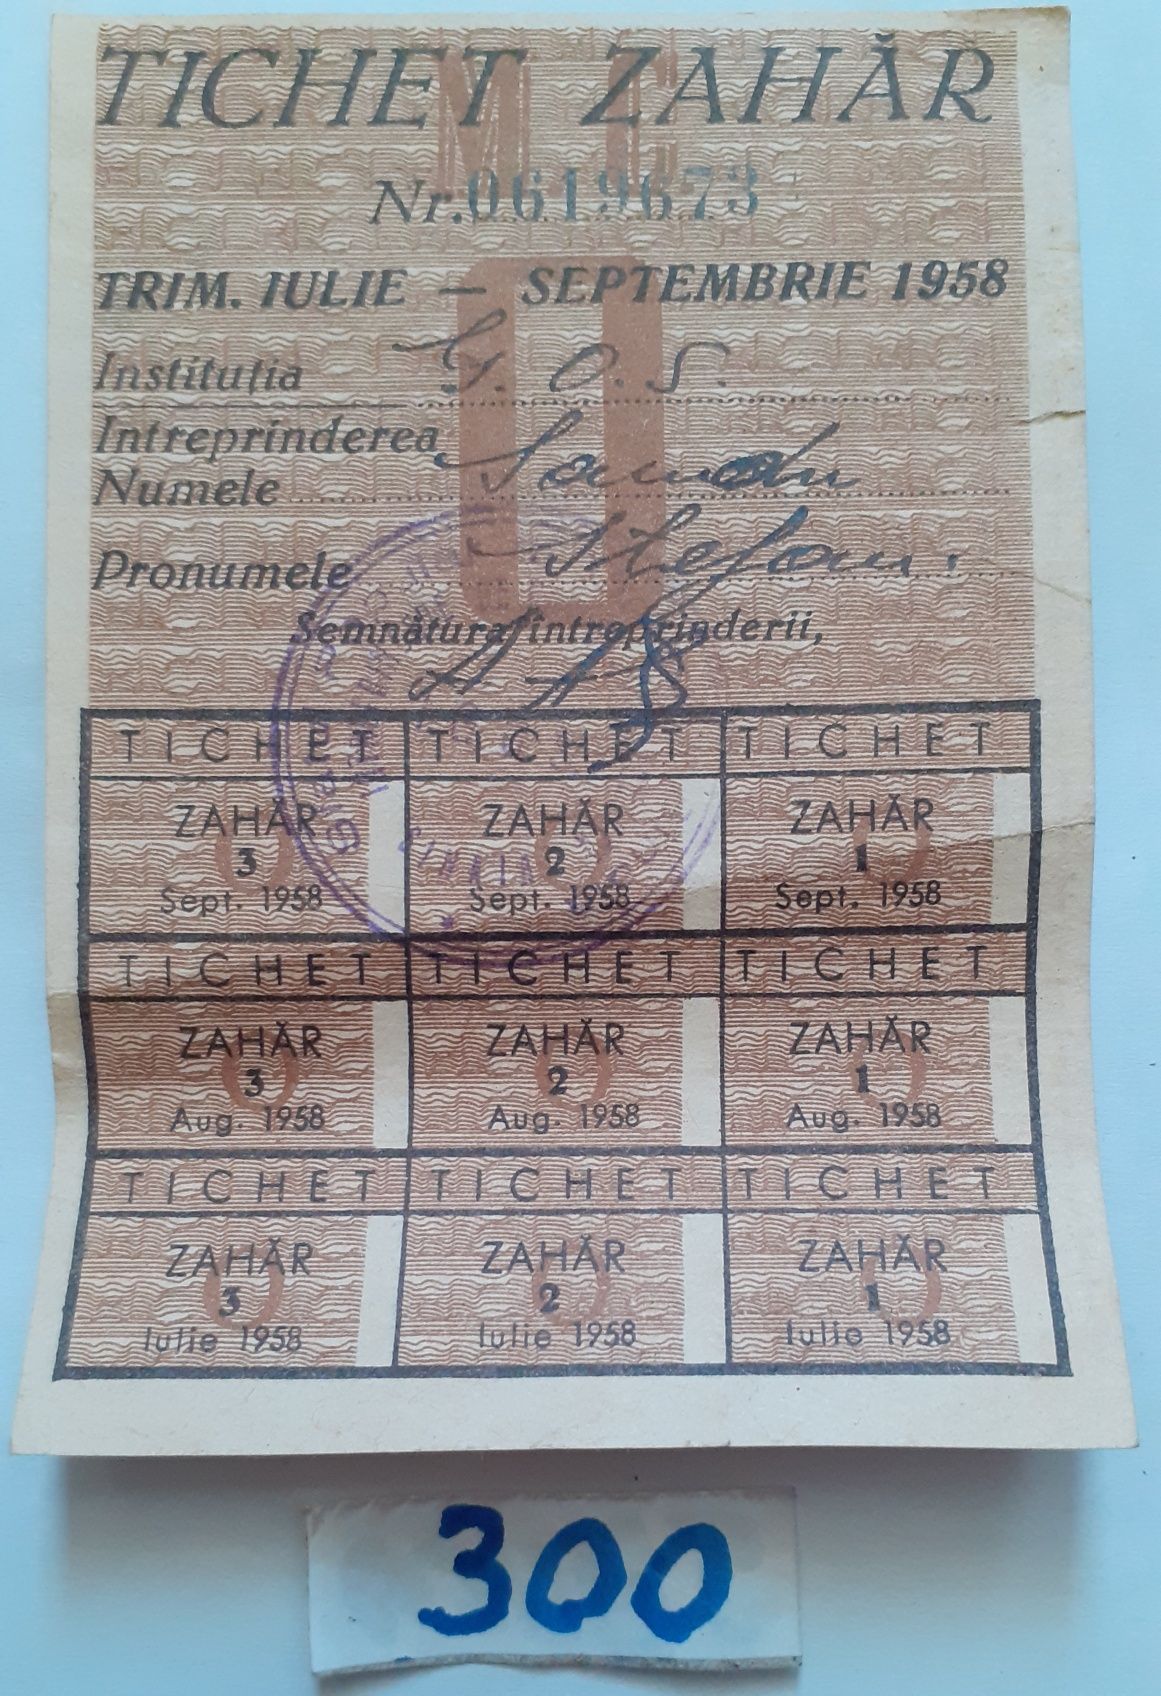 TICHET ZAHĂR
M C
Nr. 0619673
TRIM. IULIE — SEPTEMBRIE 1958
U
Instituția G. O. S.
Intreprinderea
Numele
Pronumele Ștefan.
Semnătura întreprinderii,
TICHET TICHET TICHET
ZAHĂR ZAHĂR ZAHĂR
3 2 1
Sept. 1958 Sept. 1958 Sept. 1958
SINAIA
TICHET TICHET TICHET
ZAHĂR ZAHĂR ZAHĂR
3 2 1
Aug. 1958 Aug. 1958 Aug. 1958
TICHET TICHET TICHET
ZAHĂR ZAHĂR ZAHĂR
3 2 1
Iulie 1958 Iulie 1958 Iulie 1958
300